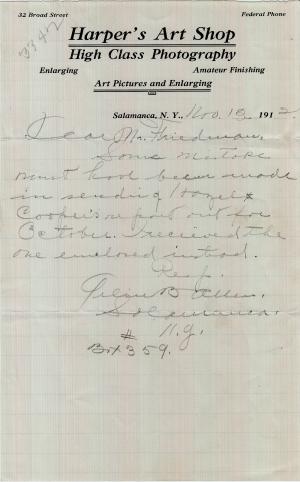 32 Broad Street Federal Phone
Harper's Art Shop
High Class Photography
Enlarging Amateur Finishing
Art Pictures and Enlarging
Salamanca, N. Y., Nov. 18 1912
Dear Mr. Friedman,
Some mistake
must have been made
in sending Hazel
Cooper's report out for
October. I received the
one enclosed instead.
Resp.
B Allen.
Salamanca.
N.Y.
Box 359.